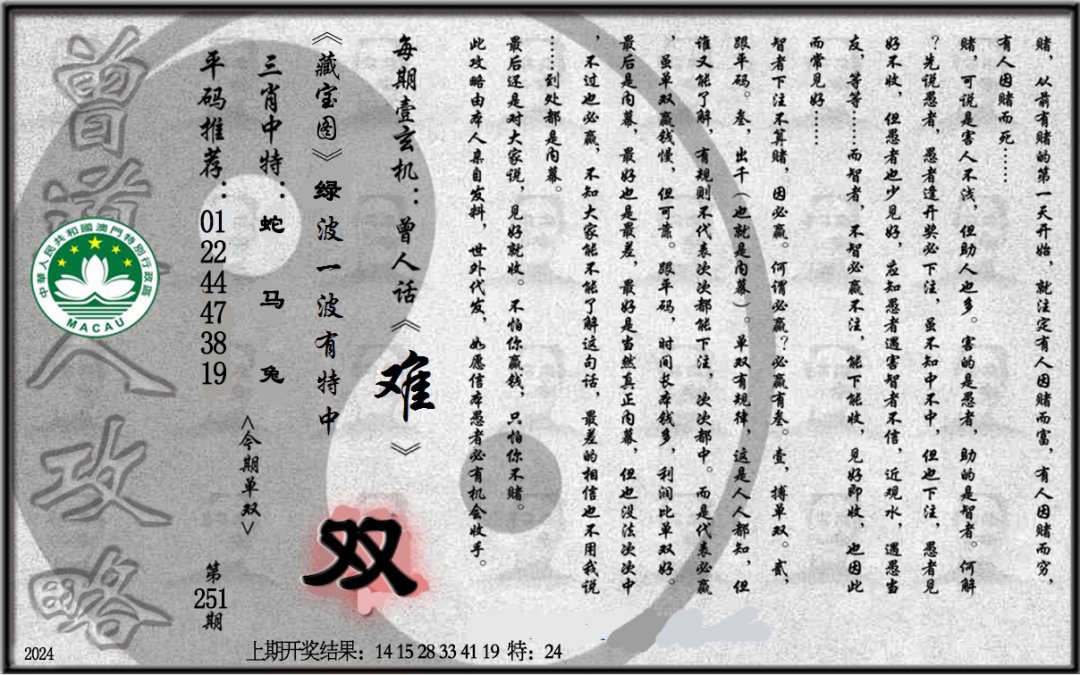 赌，从前有赌的第一天开始，就注定有人因赌而富，有人因赌而穷，
有人因赌而死……
赌，可说是害人不浅，但助人也多。害的是愚者，助的是智者。何解
？先说愚者，愚者逢开奖必下注，虽不知中不中，但也下注，愚者见
好不收，但愚者也少见好，应知愚者遇害智者不信，近观水，遇愚当
友，等等……而智者，不智必赢不注，能下能收，见好即收，也因此
而常见好……
智者下注不算赌，因必赢。何谓必赢？必赢有叁。壹，搏单双。贰，
跟平码。叁，出千（也就是内幕）。单双有规律，这是人人都知，但
谁又能了解，有规则不代表次次都能下注，次次都中。而是代表必赢
，虽单双赢钱慢，但可靠。跟平码，时间长本钱多，利润比单双好。
最后是内幕，最好也是最差，最好是当然真正内幕，但也没法次次中
，不过也必赢，不知大家能不能了解这句话，最差的相信也不用我说
……到处都是内幕。
最后还是对大家说，见好就收。不怕你赢钱，只怕你不赌。
此攻略由本人亲自发料，世外代发，如愿信本愚者必有机会收手。
每期壹玄机：曾人话《难》
《藏宝图》绿波一波有特中
双
三肖中特：蛇 马 兔
<今期单双>
平码推荐：01 22 44 47 38 19
第251期
曾道人攻略
中華人民共和國澳門特別行政區
MACAU
2024
上期开奖结果：14 15 28 33 41 19 特：24